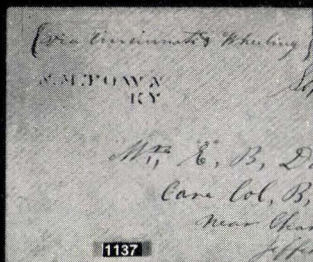 (Via Cincinnati & Wheeling)
KY
Mrs E, B, D
Care Col, B,
near Char
Jeffer
1137